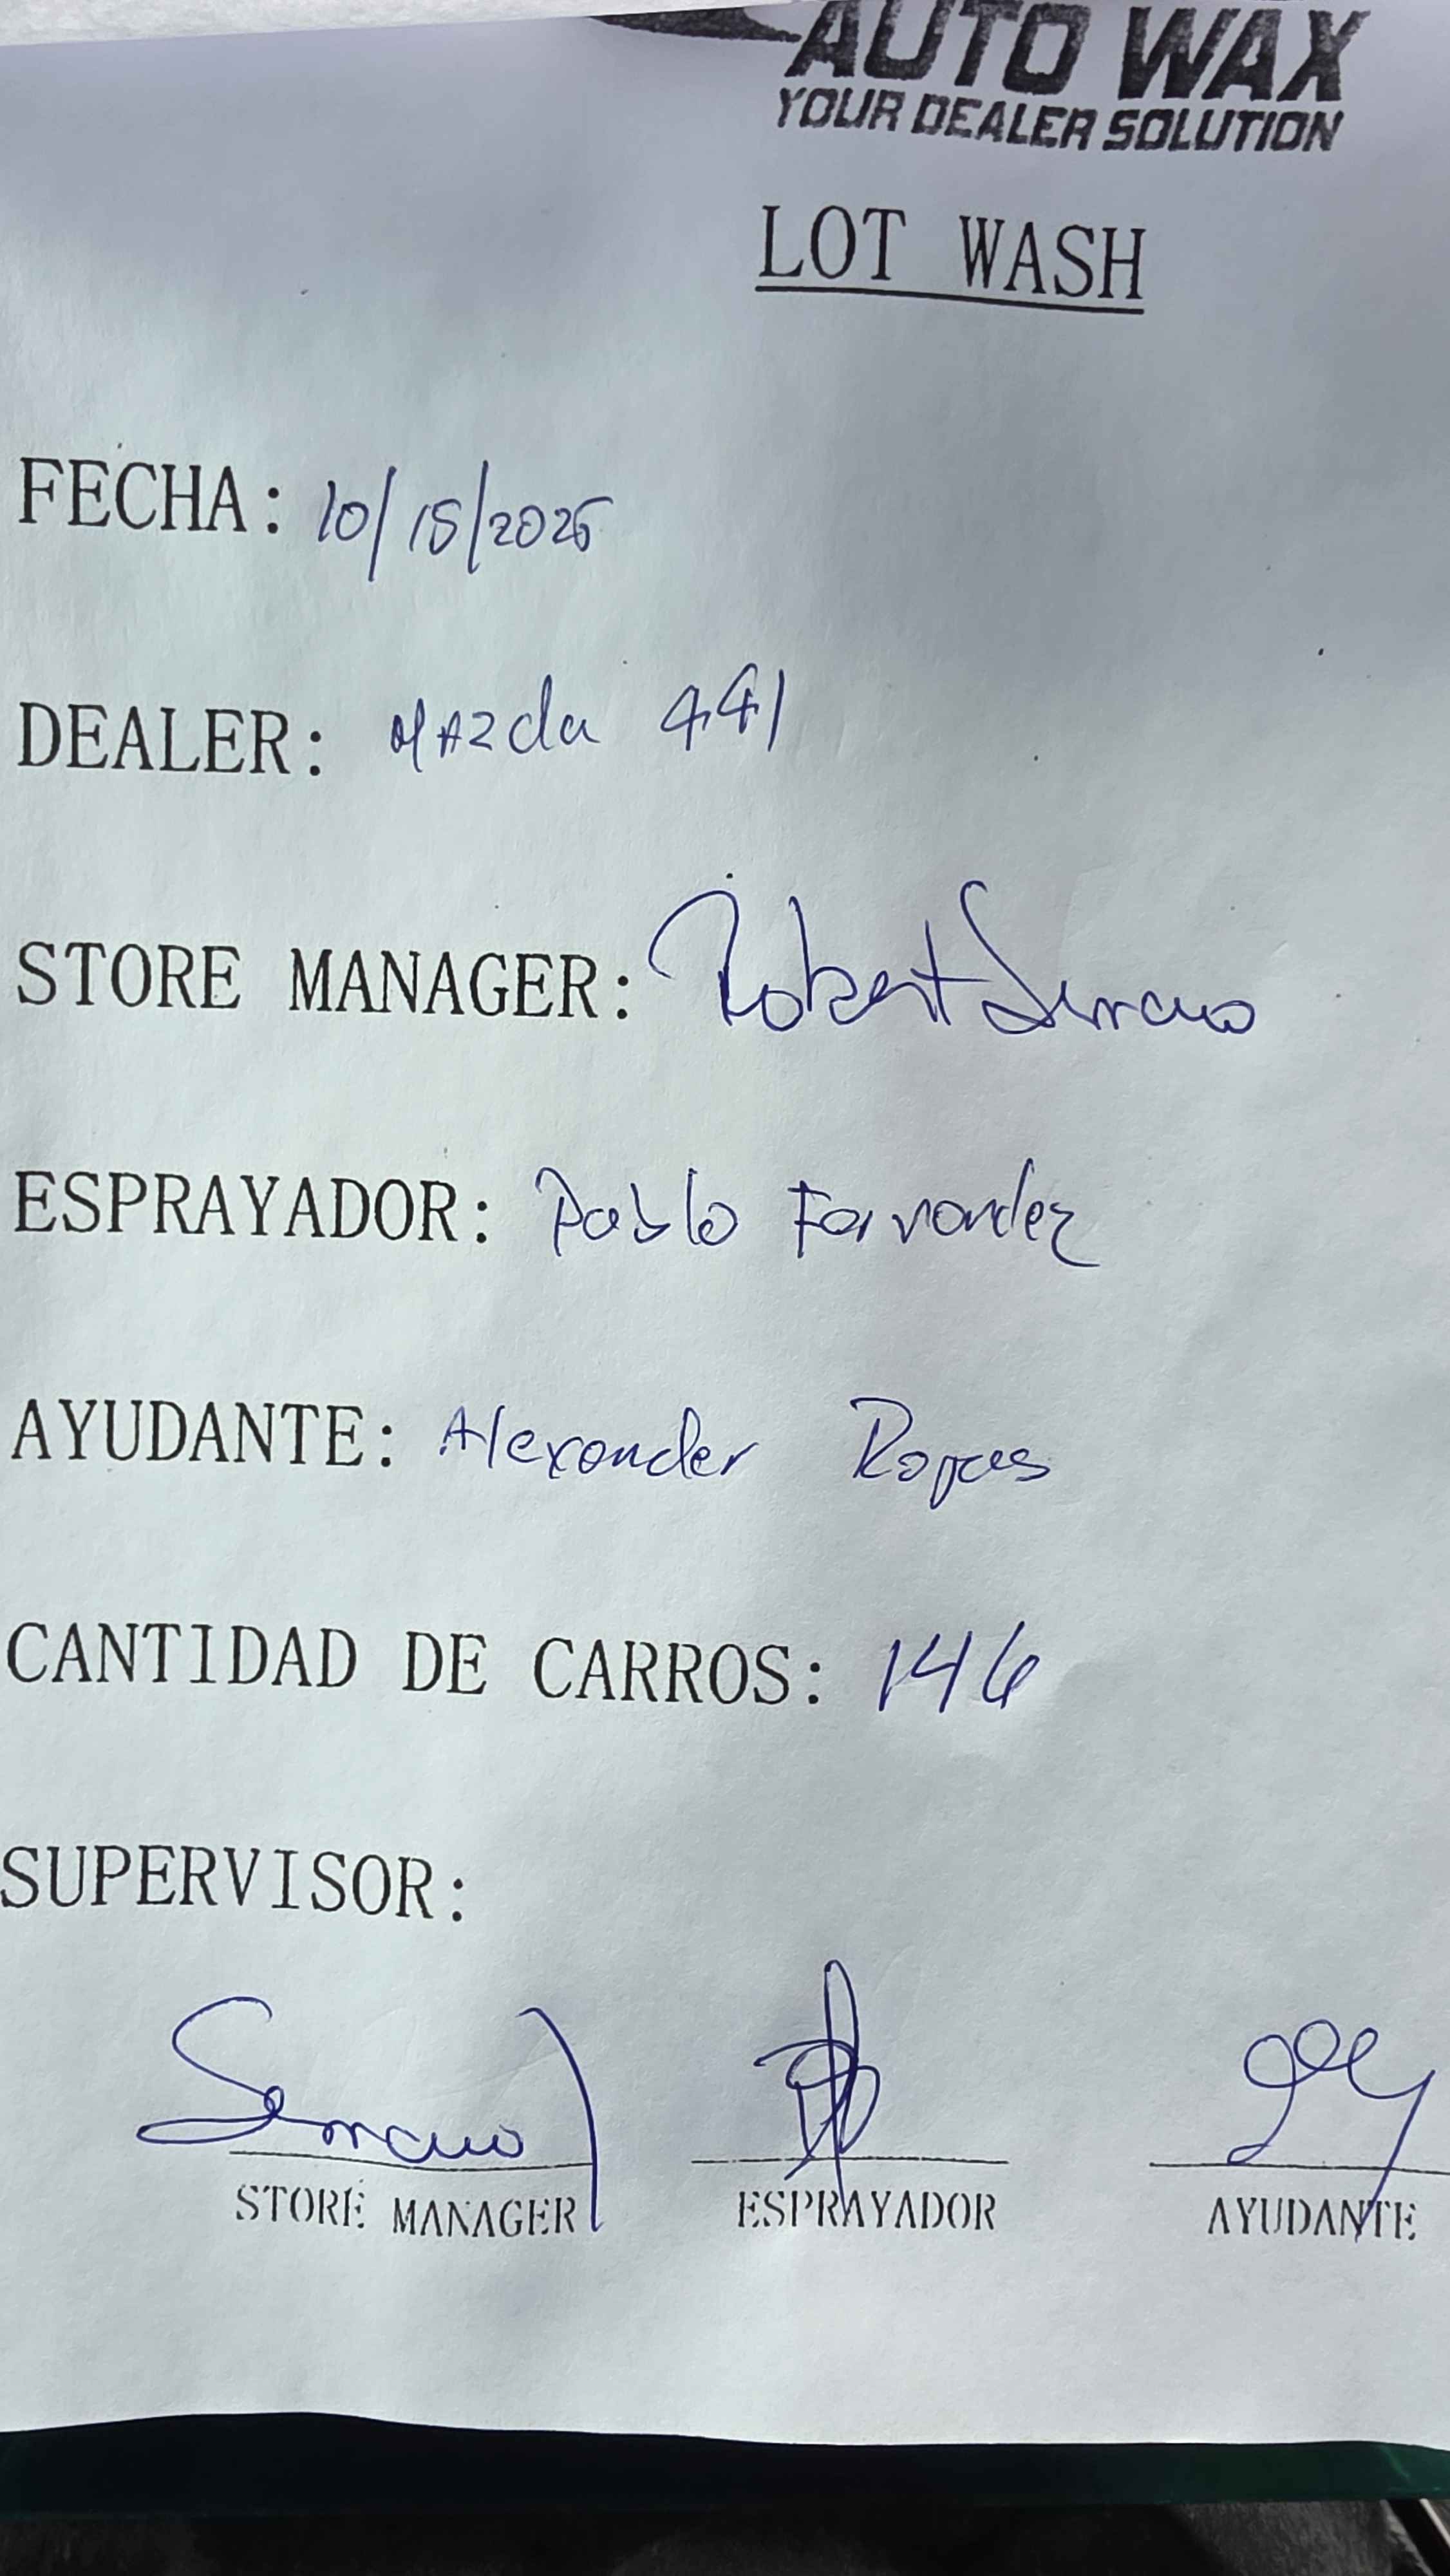 AUTO WAX
YOUR DEALER SOLUTION
LOT WASH
FECHA: 10/15/2025
DEALER: Mazda 441
STORE MANAGER: Robert Serrano
ESPRAYADOR: Pablo Fernandez
AYUDANTE: Alexander Rojas
CANTIDAD DE CARROS: 146
SUPERVISOR:
Serrano
STORE MANAGER ESPRAYADOR AYUDANTE